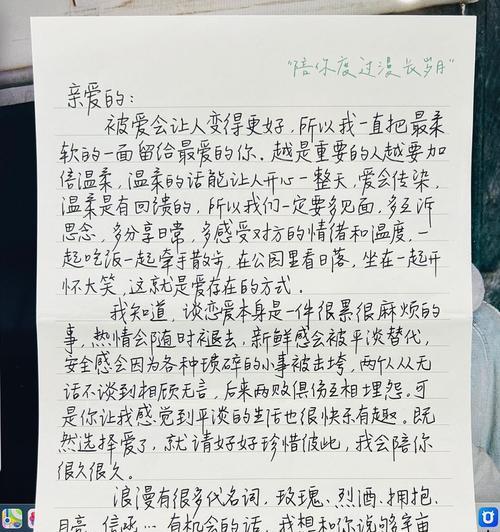 "陪你度过漫长岁月"
亲爱的：
被爱会让人变得更好，所以我一直把最柔
软的一面留给最爱的你。越是重要的人越要加
倍温柔，温柔的话能让人开心一整天，爱会传染，
温柔是有回馈的，所以我们一定要多见面，多互诉
思念，多分享日常，多感受对方的情绪和温度，一
起吃饭一起牵手散步，在公园里看日落，坐在一起开
怀大笑，这就是爱存在的方式。
我知道，谈恋爱本身是一件很累很麻烦的
事，热情会随时褪去，新鲜感会被平淡替代，
安全感会因为各种琐碎的小事被击垮，两个人从无
话不谈到相顾无言，后来两败俱伤互相埋怨。可
是你让我感觉到平淡的生活也很快乐有趣。既
然选择爱了，就请好好珍惜彼此，我会陪你
很久很久。
浪漫有很多代名词，玫瑰、烈酒、拥抱、
月亮、信函…有机会的话，我想和你说够